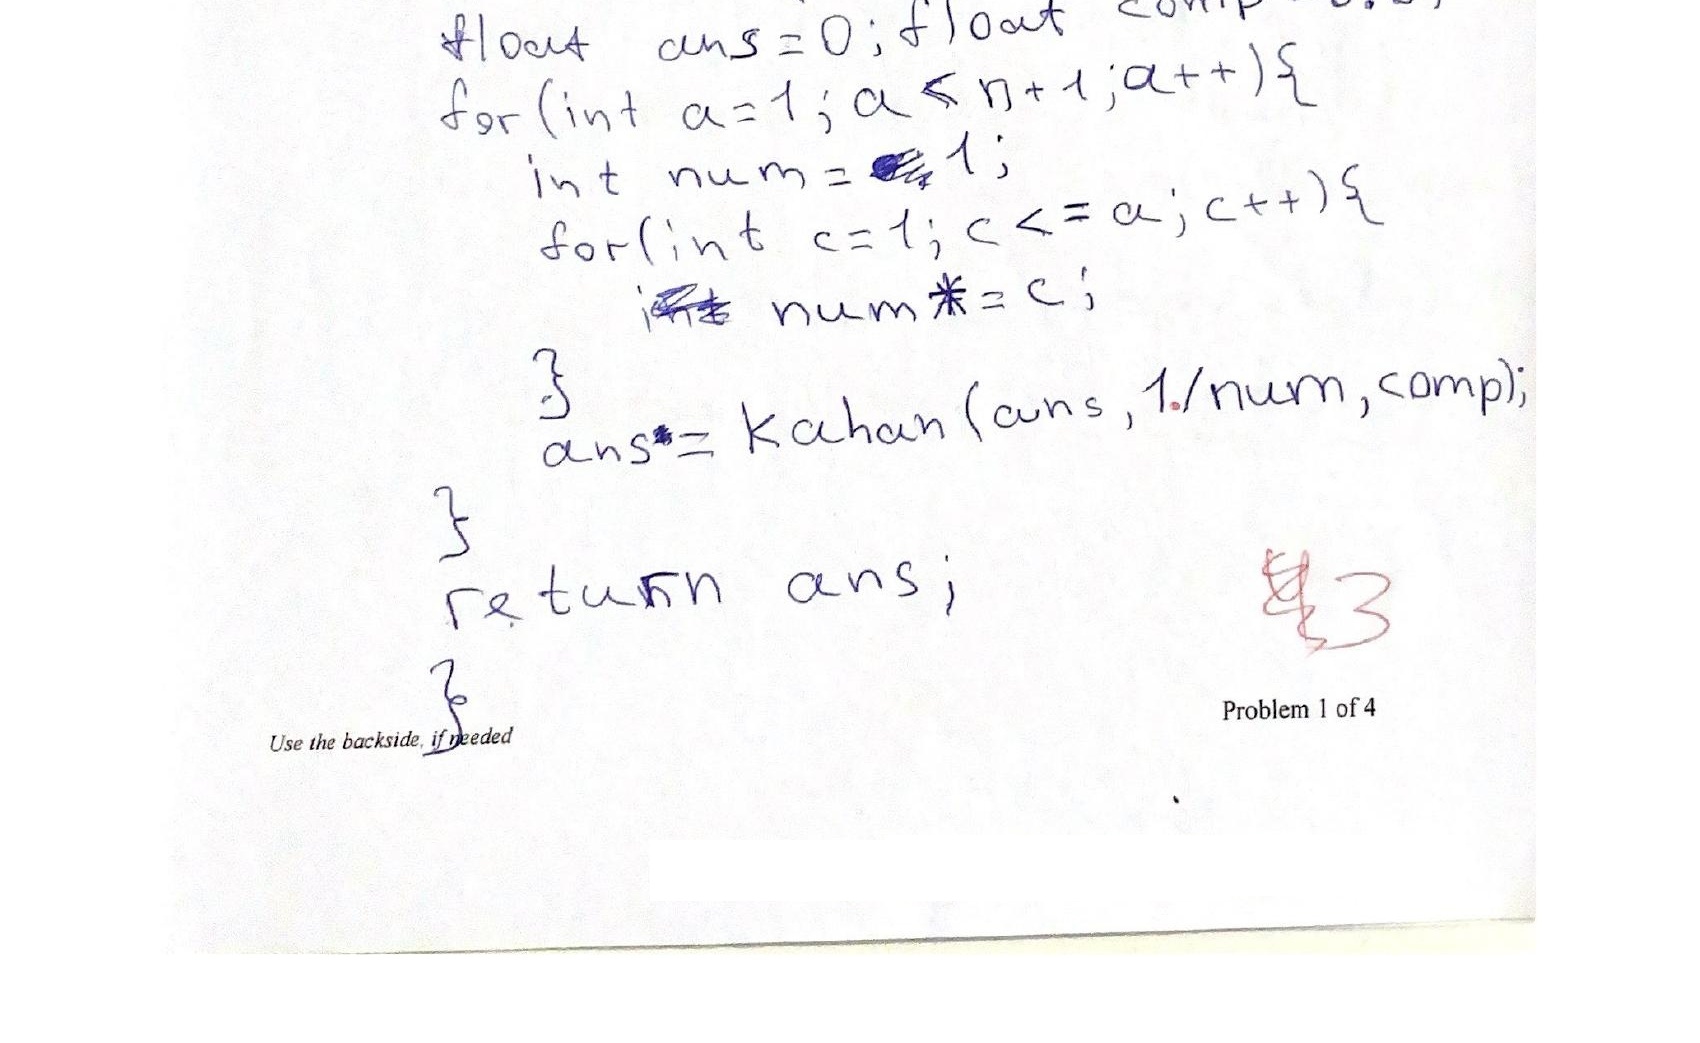 float ans=0; float
for(int a=1; a < n+1; a++){
int num = 1;
for(int c=1; c <= a; c++){
num *= c;
}
ans = Kahan(ans, 1./num, comp);
}
return ans;
3
}
Problem 1 of 4
Use the backside, if needed